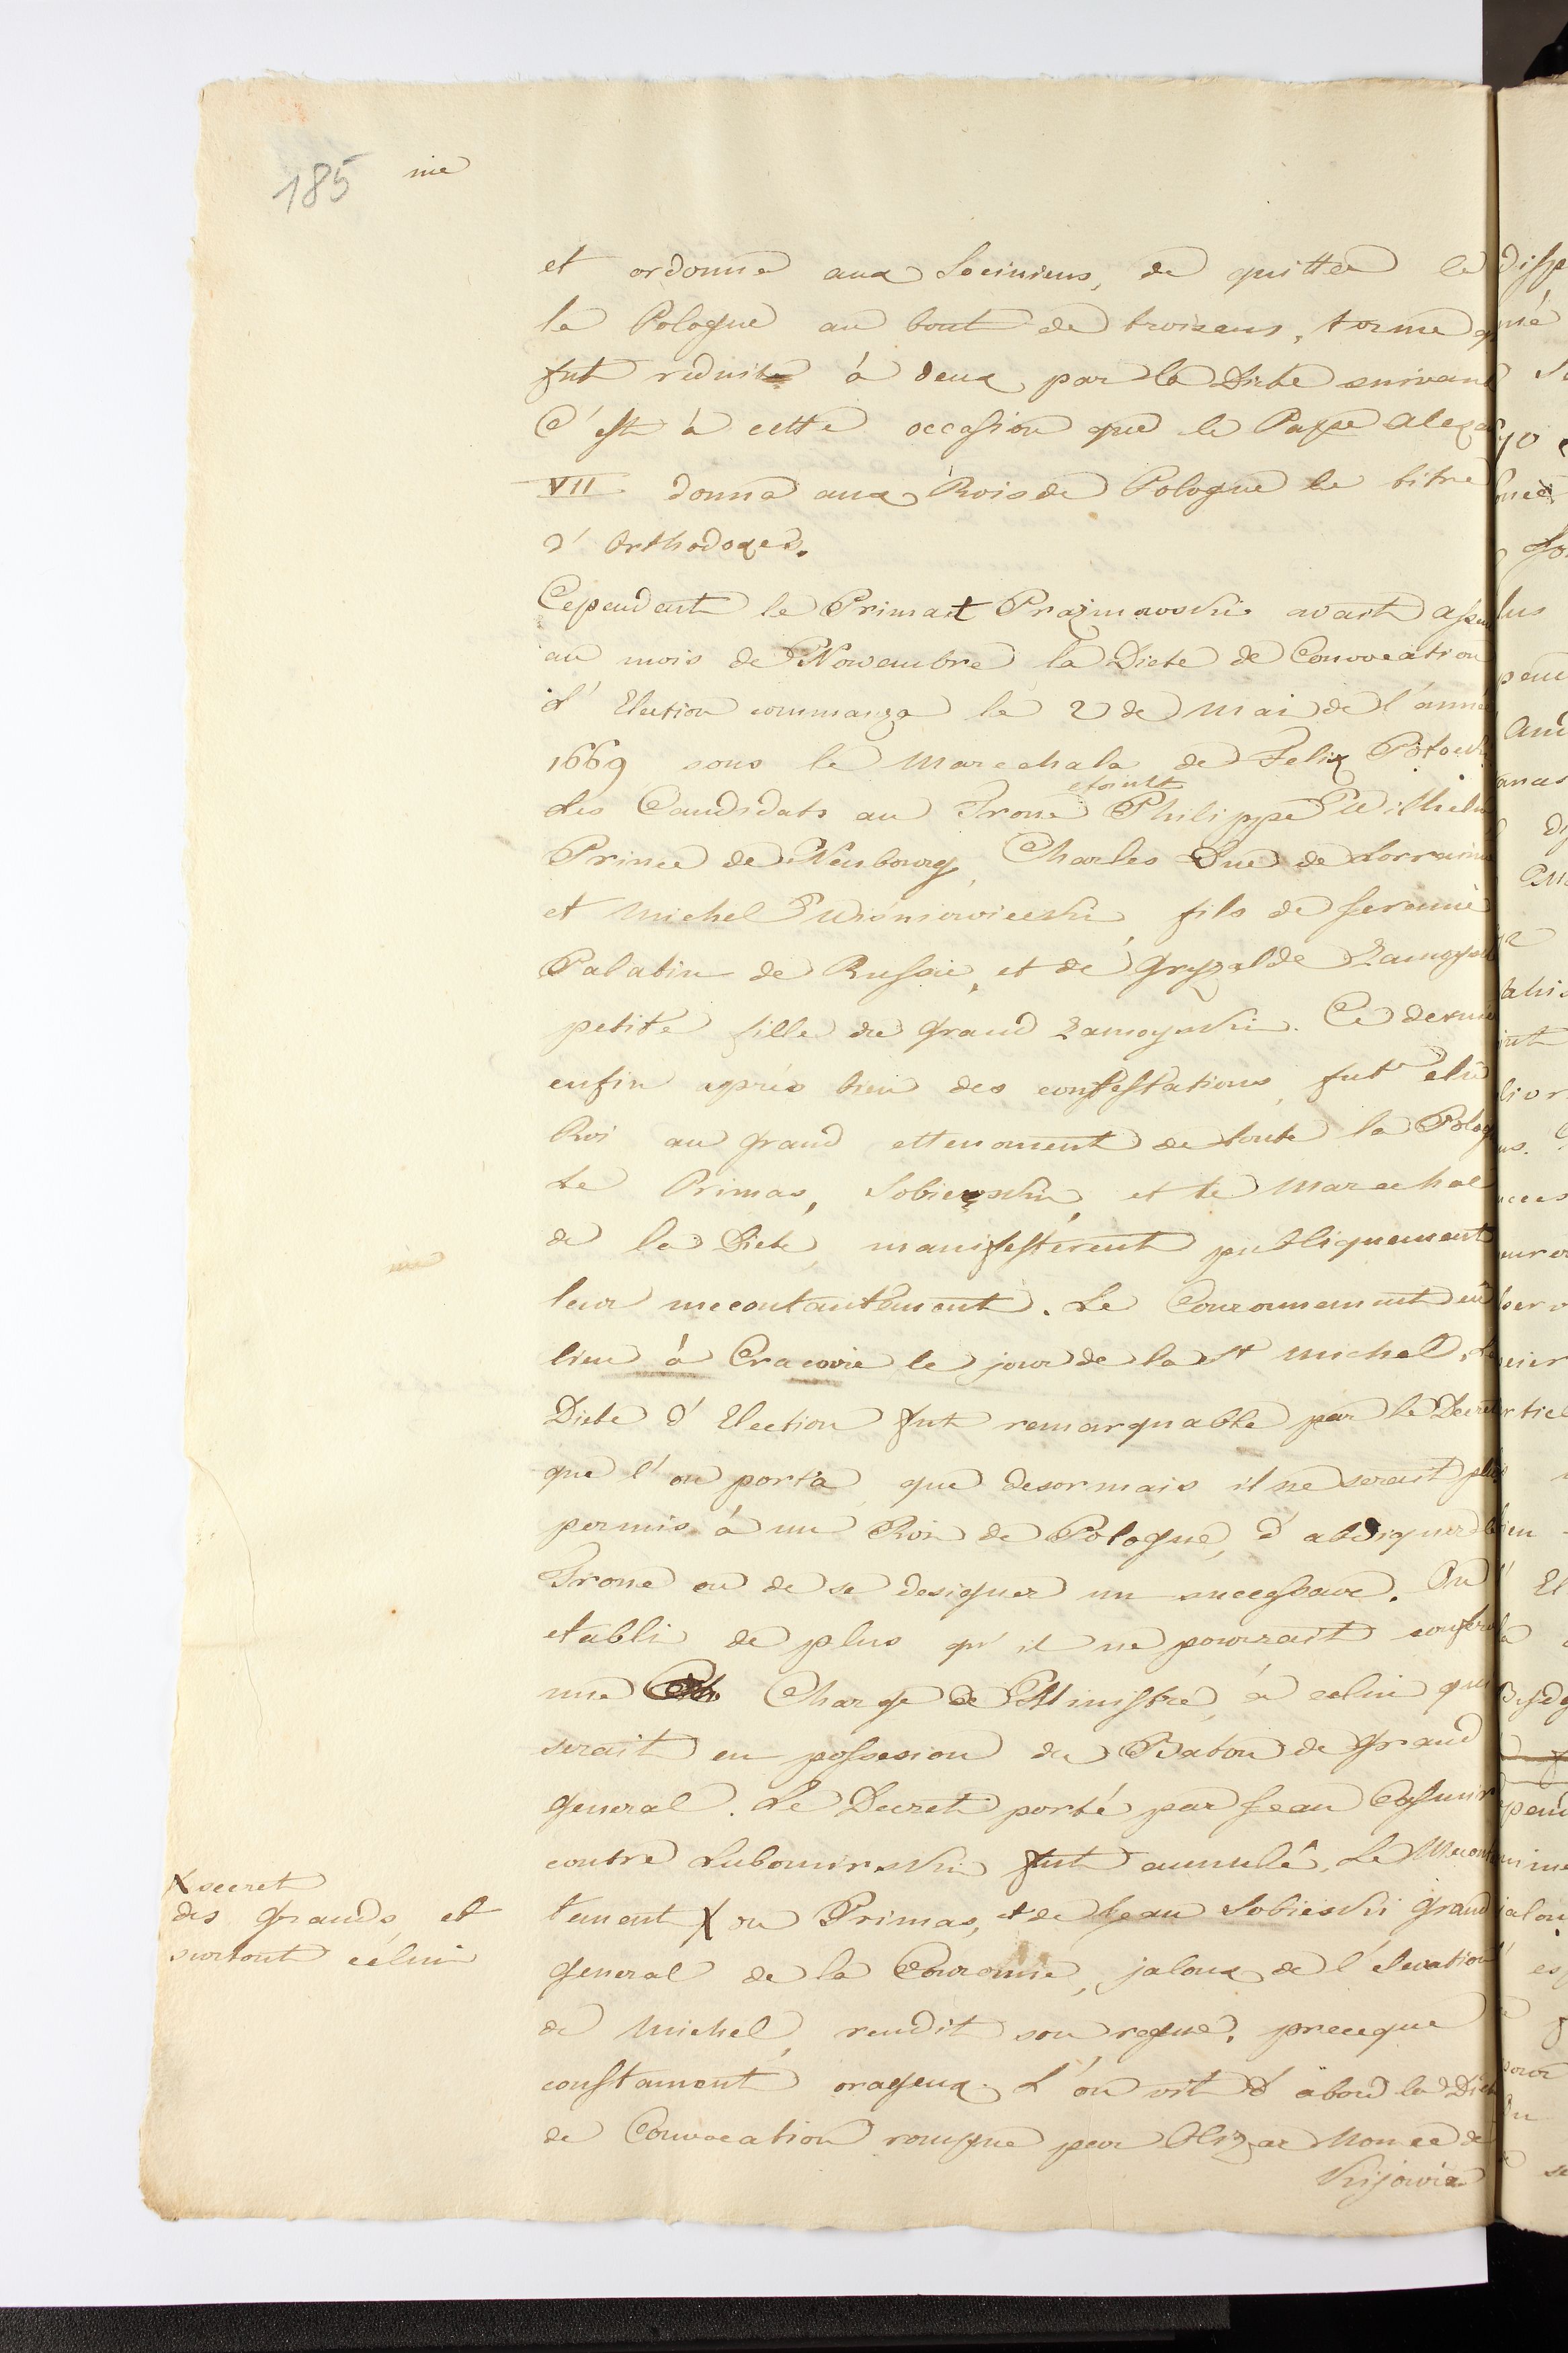 185 nie
et ordonne aux Sociniens, de quitter le
la Pologne au bout de troisans, terme
fut reduite à deux par la Diete suivan
C'est à cette occasion que le Pape Alexa
VII donna aux Rois de Pologne le titre
d'Orthodoxes.
Cependent le Primat Prażmowski avait assem
au mois de Nowembre la Diete de Convocation
L'Election commança le 2 de Mai de l'anné
1669 sous le Marechala de Felix Potocki
etaint
Les Candidats au Trone Philippe Wilhelm
Prince de Neubourg, Charles Duc de Lorraine
et Michel Wiśniowiecki, fils de Jeremie
Palatin de Russie, et de Gryzalde Zamoysk
petite fille du grand Zamoyski. Ce dernie
enfin après bien des contestations, fut elu
Roi au grand ettenoment de toute la Polog
Le Primas, Sobieski, et le Marechal
de la Diete, manifestèrent publiquement
leur mecontantement. Le Couronnement eu
lieu à Cracovie le jour de la St Michel. La
Diete d'Election fut remarquable par le Decret
que l'on porta, que desormais il ne serait plus
permis à un Roi de Pologne, d'abdiquer le
Trone ou de se designer un successeur. On
etabli de plus qu'il ne pourrait confere
une Charge de Ministre, à celui qui
serait en possesion du Baton de grand
general. Le Decret porté par Jean Casimir
contre Lubomirski fut annulé. Le Mecon
X secret
des grands, et
surtout célui
tement X du Primas, et de Jean Sobieski grand
general de la Couronne, jaloux de l'elevation
de Michel, rendit son regne, preceque
constament orageux. L'on vit d'abord la Diet
de Convocation rompue par Olizar Nonce de
Kijovie